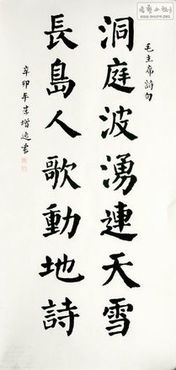 毛主席詩句
洞庭波湧連天雪
長島人歌動地詩
辛卯年朱增逸書